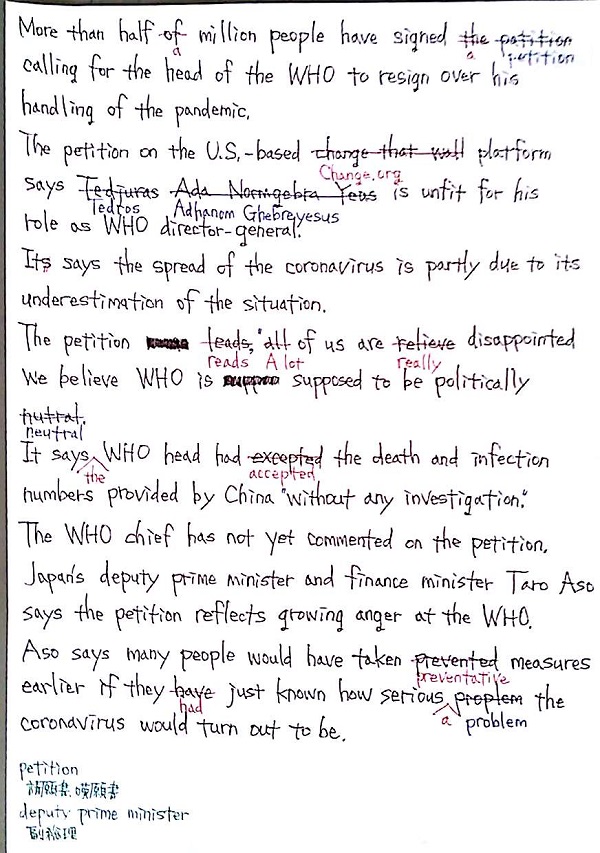 More than half of million people have signed the patition
a a petition
calling for the head of the WHO to resign over his
handling of the pandemic.
The petition on the U.S.-based change that wall platform
Change.org
says Tedjuras Ada Normgebra Yeos is unfit for his
Tedros Adhanom Ghebreyesus
role as WHO director-general.
Its says the spread of the coronavirus is partly due to its
underestimation of the situation.
The petition leads, "all of us are relieve disappointed
reads A lot really
We believe WHO is supposed to be politically
nutral.
neutral
It says WHO head had excepted the death and infection
the accepted
numbers provided by China "without any investigation."
The WHO chief has not yet commented on the petition.
Japan's deputy prime minister and finance minister Taro Aso
says the petition reflects growing anger at the WHO.
Aso says many people would have taken prevented measures
preventative
earlier if they have just known how serious proplem the
had a problem
coronavirus would turn out to be.
petition
祈願書、嘆願書
deputy prime minister
副総理